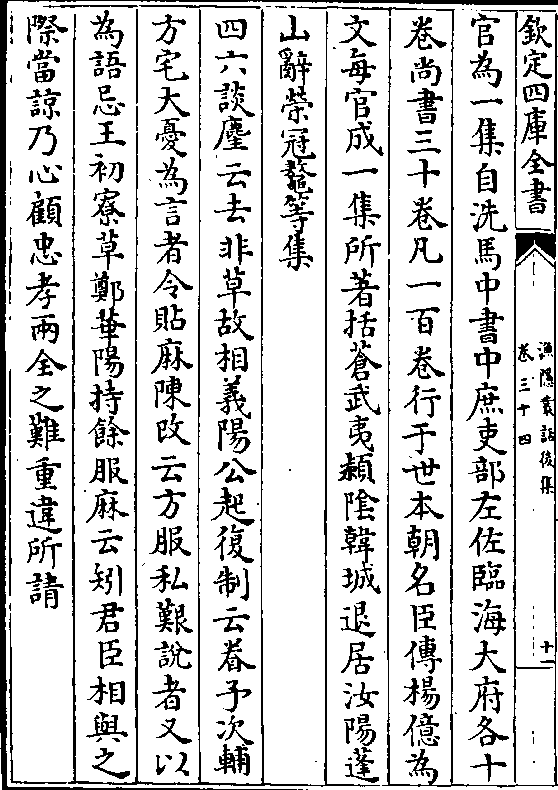 欽定四庫全書
漁隱叢話後集
卷三十四
十一
官為一集自洗馬中書中庶吏部左佐臨海大府各十
卷尚書三十卷凡一百卷行于世本朝名臣傳楊億為
文每官成一集所著括蒼武夷潁陰韓城退居汝陽蓬
山辭榮冠鼇等集
四六談麈云去非草故相義陽公起復制云眷予次輔
方宅大憂為言者令貼麻陳改云方服私艱說者又以
為語忌王初寮草鄭華陽持餘服麻云矧君臣相與之
際當諒乃心顧忠孝兩全之難重違所請